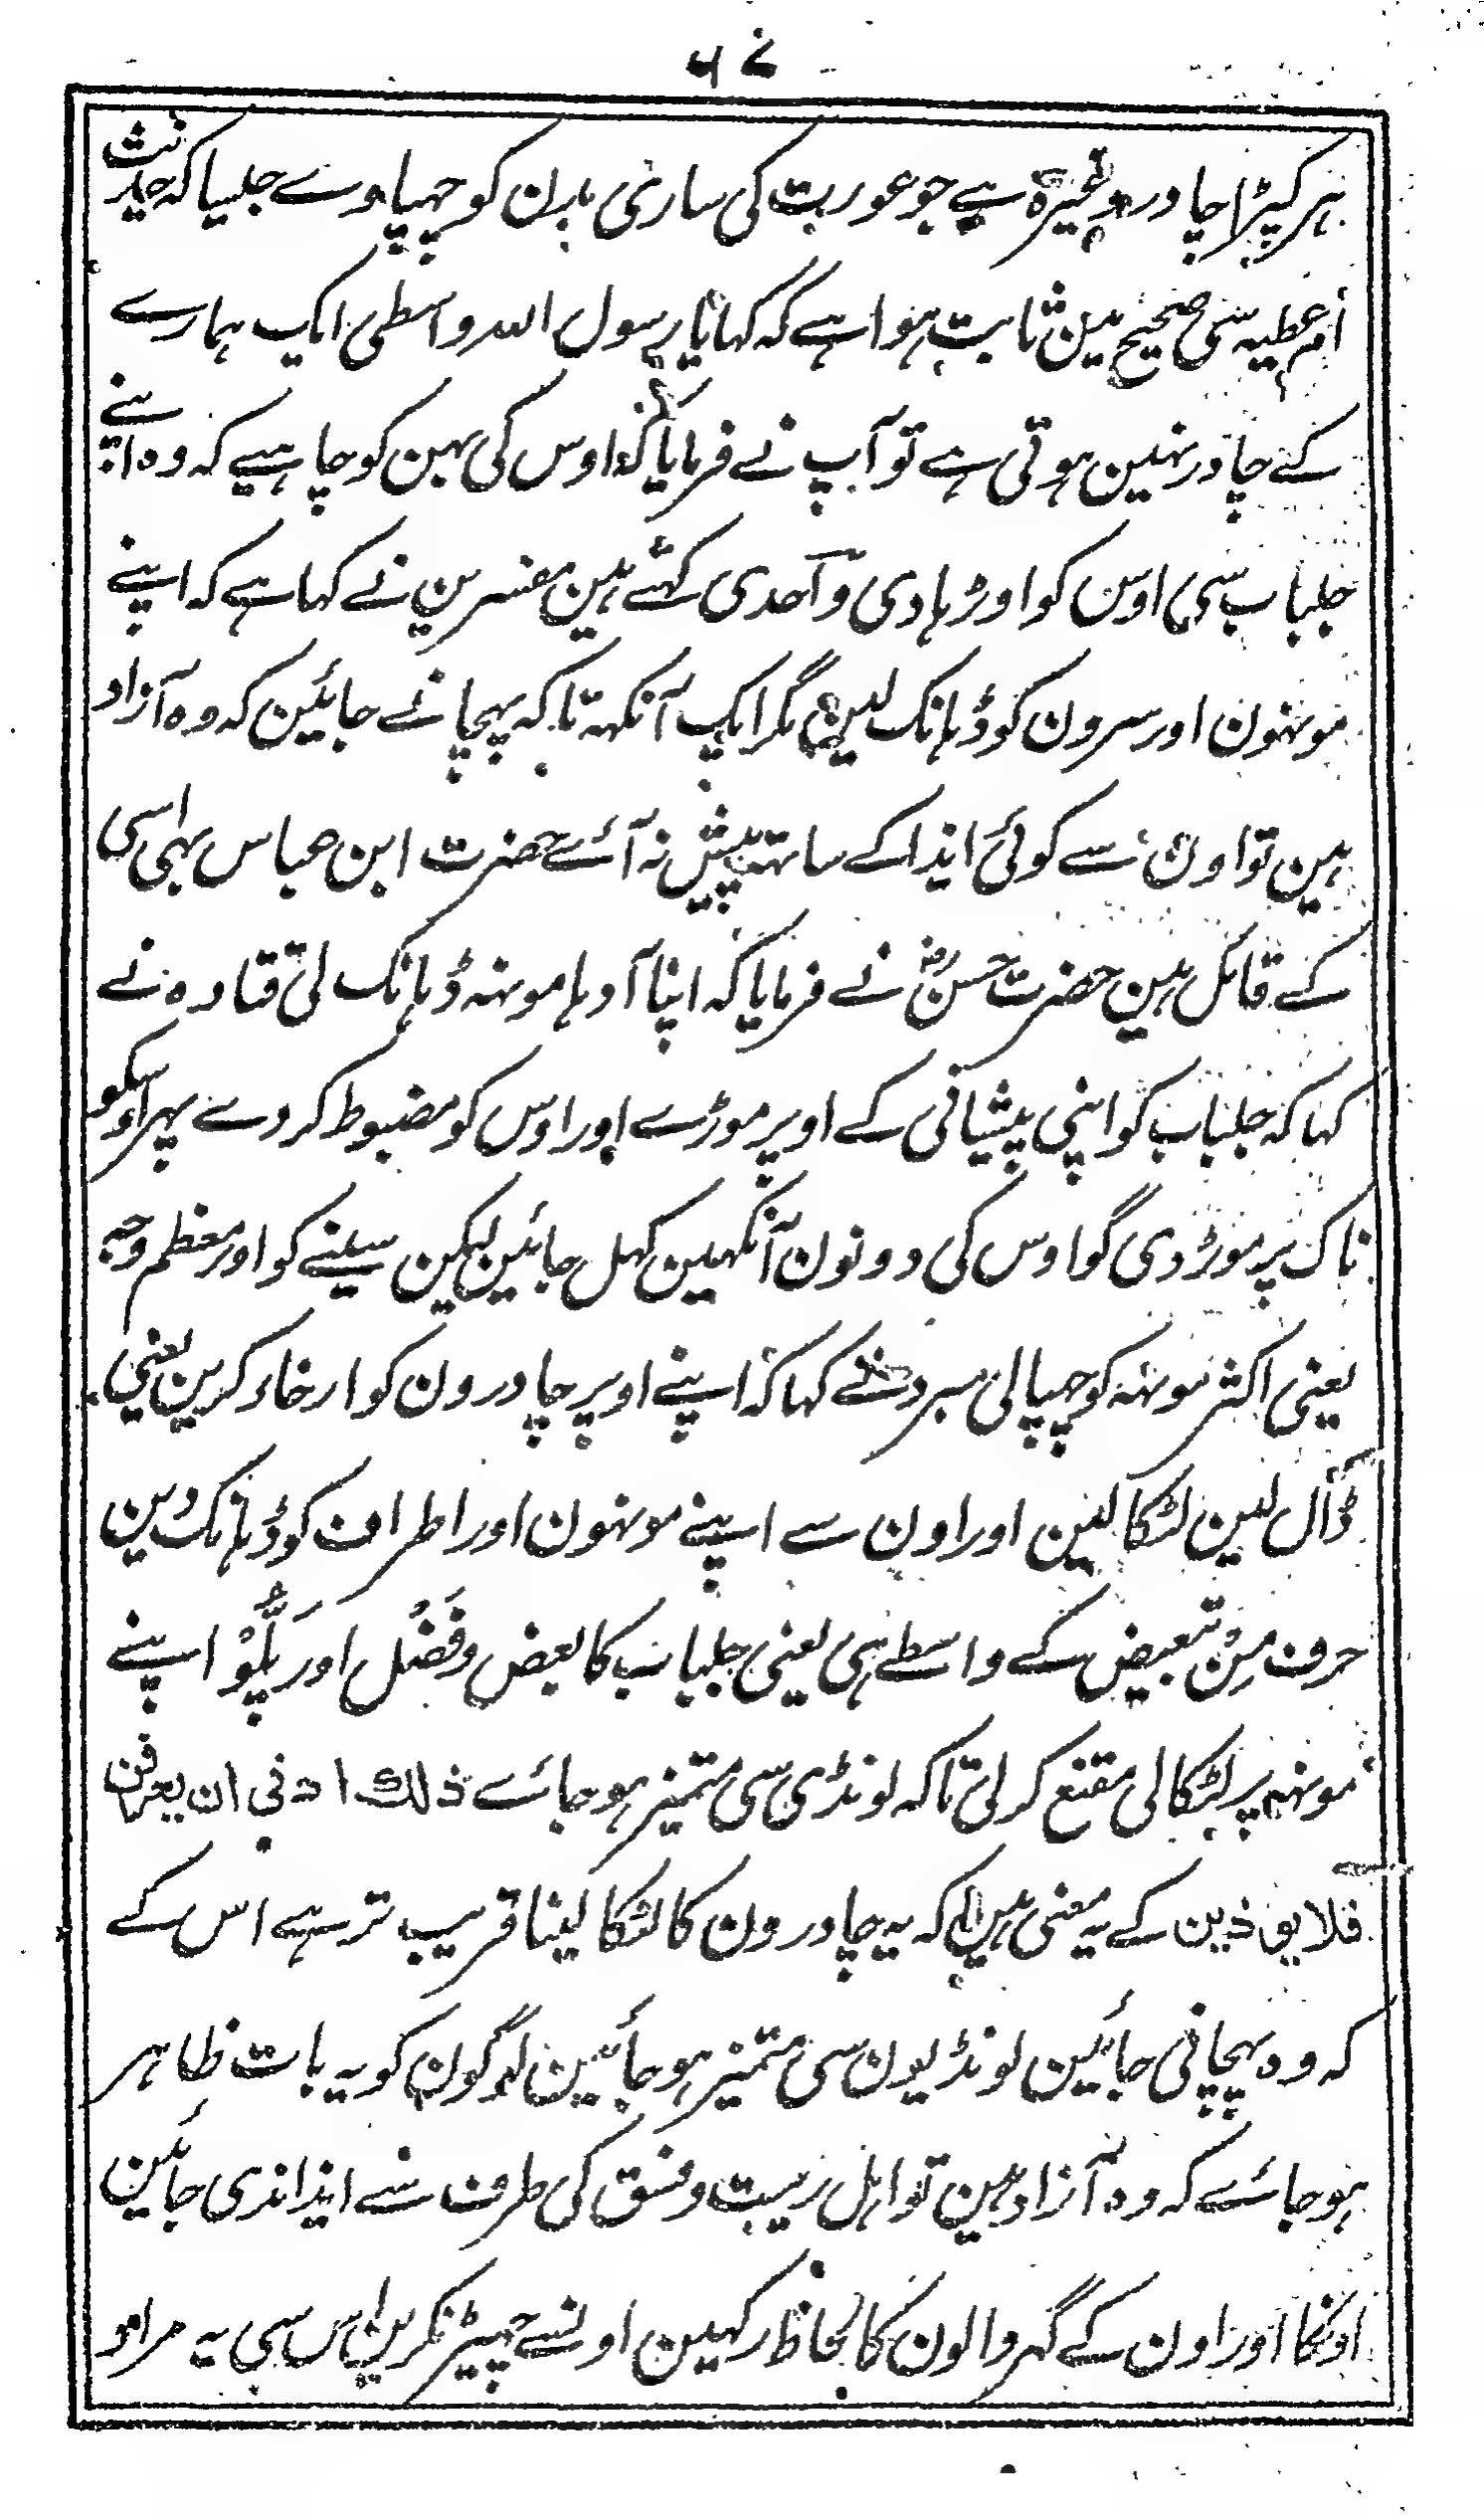 ہر کپڑا چادر وغیرہ ہے جو عورت کی ساری بدن کو چہپاوے جیسا کہ حدیث
ام عطیہ سی صحیح مین ثابت ہوا ہے کہ کہا یا رسول اللہ واسطی ایک ہمارے
کے چادر نہین ہوتی ہے تو آپ نے فرمایا کہ اوس کی بہن کو چاہیے کہ وہ اپنے
جلباب سی اوس کو اوڑہا دی وآحدی کہتے ہین مفسرین نے کہا ہے کہ اپنے
مونہون اور سرون کو ڈہانک لین مگر ایک آنکہہ تاکہ پہچانے جائین کہ وہ آزاد
ہین تو اون سے کوئی ایذا کے ساتہہ پیش نہ آئے حضرت ابن عباس بہی اسی
کے قائل ہین حضرت حسنؓ نے فرمایا کہ اپنا آدہا مونہہ ڈہانک لی قتادہ نے
کہا کہ جلباب کو اپنی پیشانی کے اوپر موڑے اور اوس کو مضبوط کردے پہر اوسکو
ناک پر موڑ دی گو اوس کی دونون آنکہین کہل جائین لیکن سینے کو اور معظم وجہ
یعنی اکثر مونہہ کو چہپالی مبرد نے کہا کہ اپنے اوپر چادرون کو ارخاء کرین یعنی
ڈال لین لٹکا لین اور اون سے اپنے مونہون اور اطراف کو ڈہانک دین
حرف مِنْ تبعیض کے واسطے ہی یعنی جلباب کا بعض وفَضْل اور پَلُّوْ اپنے
مونہہ پر لٹکالی مقنع کر لی تاکہ لونڈی سی متمیز ہوجائے ذلك ادنی ان یعرفن
فلا یؤذین کے یہ معنی ہین کہ یہ چادرون کا لٹکا لینا قریب تر ہے اس کے
کہ وہ پہچانی جائین لونڈیون سی متمیز ہو جائین لوگون کو یہ بات ظاہر
ہو جائے کہ وہ آزاد ہین تو اہل ریبت وفسق کی طرف سے ایذا ندی جائین
اونکا اور اون کے گہر والون کا لحاظ رکہین اونسے چہیڑ نکرین اس سی یہ مراد